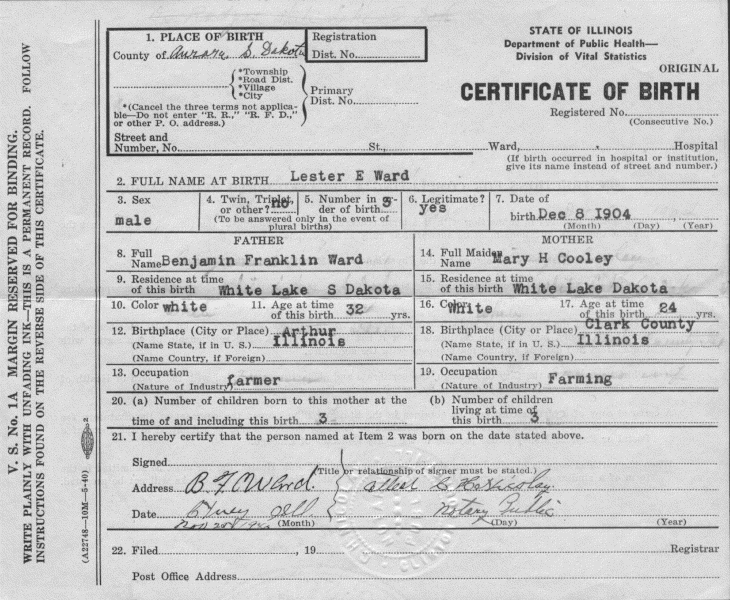 V. S. No. 1A MARGIN RESERVED FOR BINDING.
WRITE PLAINLY WITH UNFADING INK—THIS IS A PERMANENT RECORD. FOLLOW
INSTRUCTIONS FOUND ON THE REVERSE SIDE OF THIS CERTIFICATE.
(A22748—10M—5-40) 2
1. PLACE OF BIRTH
County of Aurora, S. Dakota
*Township
*Road Dist.
*Village
*City
*(Cancel the three terms not applica-
ble—Do not enter "R. R.," "R. F. D.,"
or other P. O. address.)
Registration
Dist. No.
Primary
Dist. No.
STATE OF ILLINOIS
Department of Public Health—
Division of Vital Statistics
ORIGINAL
CERTIFICATE OF BIRTH
Registered No.
(Consecutive No.)
Street and
Number, No. St., Ward, Hospital
(If birth occurred in hospital or institution,
give its name instead of street and number.)
2. FULL NAME AT BIRTH Lester E Ward
3. Sex
male
4. Twin, Triplet,
or other? no
5. Number in or-
der of birth 3
(To be answered only in the event of
plural births)
6. Legitimate?
yes
7. Date of
birth Dec 8 1904
(Month) (Day) (Year)
FATHER
MOTHER
8. Full
Name Benjamin Franklin Ward
14. Full Maiden
Name Mary H Cooley
9. Residence at time
of this birth White Lake S Dakota
15. Residence at time
of this birth White Lake Dakota
10. Color white 11. Age at time
of this birth 32 yrs.
16. Color White 17. Age at time
of this birth 24 yrs.
12. Birthplace (City or Place) Arthur
(Name State, if in U. S.) Illinois
(Name Country, if Foreign)
18. Birthplace (City or Place) Clark County
(Name State, if in U. S.) Illinois
(Name Country, if Foreign)
13. Occupation
(Nature of Industry) farmer
19. Occupation
(Nature of Industry) Farming
20. (a) Number of children born to this mother at the
time of and including this birth 3
(b) Number of children
living at time of
this birth 3
21. I hereby certify that the person named at Item 2 was born on the date stated above.
Signed
(Title or relationship of signer must be stated.)
Address B F Ward.
Date
(Month) (Day) (Year)
Notary Public
22. Filed , 19 Registrar
Post Office Address